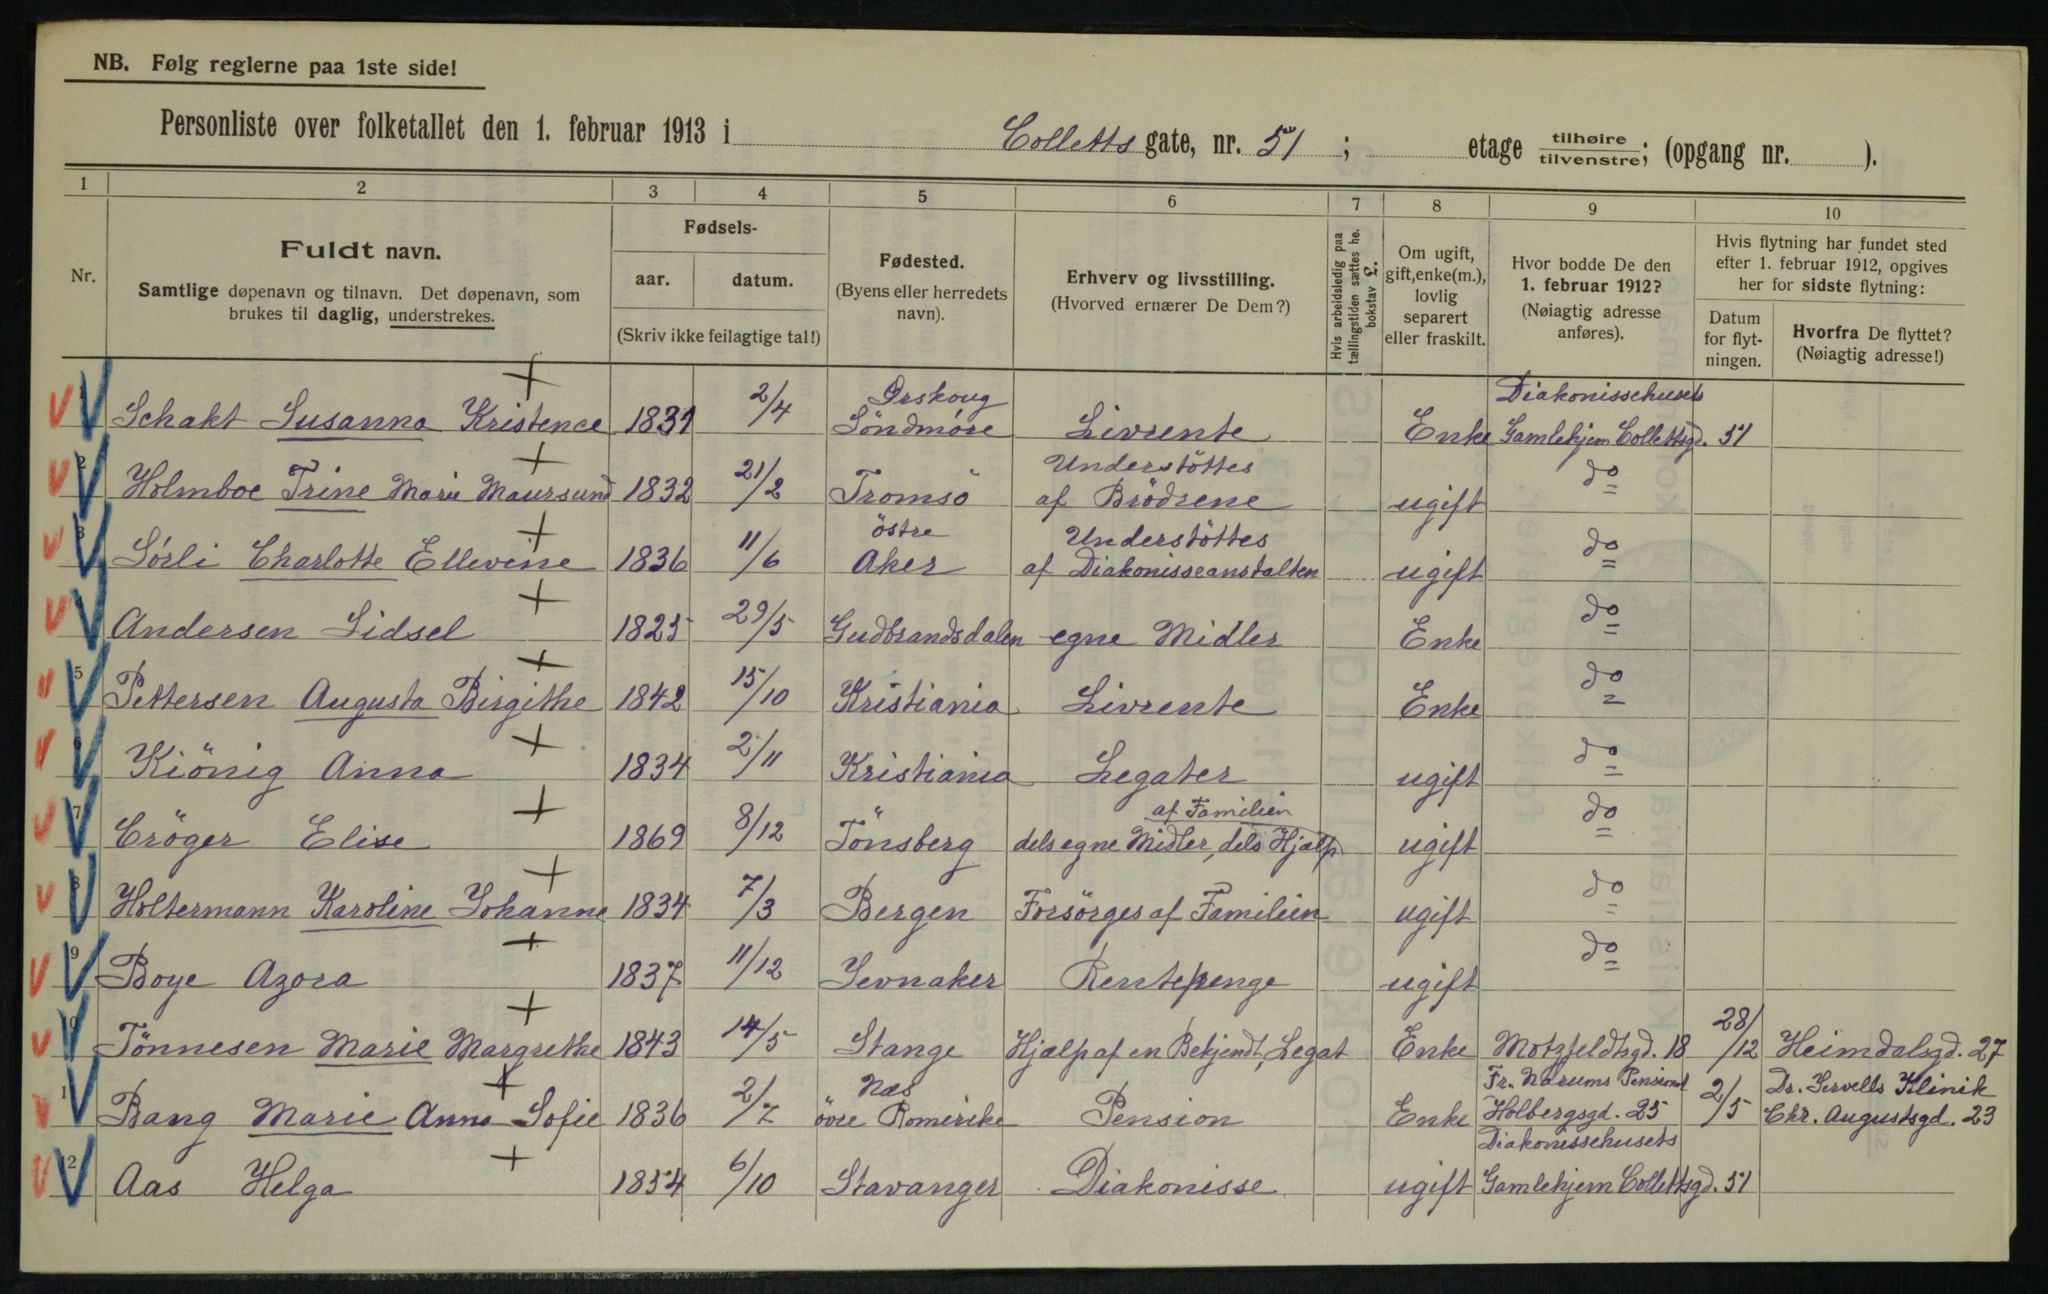 NB. Følg reglerne paa 1ste side!
Personliste over folketallet den 1. februar 1913 i Colletts gate, nr. 51 ; etage tilhøire/tilvenstre; (opgang nr. ).
1 2 3 4 5 6 7 8 9 10
Nr.
Fuldt navn.
Samtlige døpenavn og tilnavn. Det døpenavn, som
brukes til daglig, understrekes.
Fødsels-
aar. datum.
(Skriv ikke feilagtige tal!)
Fødested.
(Byens eller herredets
navn).
Erhverv og livsstilling.
(Hvorved ernærer De Dem?)
Hvis arbeidsledig paa
tællingstiden sættes he.
bokstav £.
Om ugift,
gift, enke(m.),
lovlig
separert
eller fraskilt.
Hvor bodde De den
1. februar 1912?
(Nøiagtig adresse
anføres).
Hvis flytning har fundet sted
efter 1. februar 1912, opgives
her for sidste flytning:
Datum
for flyt-
ningen.
Hvorfra De flyttet?
(Nøiagtig adresse!)
1 Schakt Susanna Kristence 1831 2/4 Ørskoug Söndmöre Livrente Enke Diakonissehusets Gamlehjem Collettsgd. 51
2 Holmboe Trine Marie Maursund 1832 21/2 Tromsö Understöttes af Brödrene ugift do
3 Sörli Charlotte Ellevine 1836 11/6 östre Aker Understöttes af Diakonisseanstalten ugift do
Andersen Sidsel 1825 29/5 Gudbrandsdalen egne Midler Enke do
5 Pettersen Augusta Birgithe 1842 15/10 Kristiania Livrente Enke do
6 Kiönig Anna 1834 2/11 Kristiania Legater ugift do
7 Cröger Elise 1869 8/12 Tönsberg dels egne Midler, dels Hjælp af Familien ugift do
8 Holtermann Karoline Johanne 1834 7/3 Bergen Forsörges af Familien ugift do
9 Boye Azora 1837 11/12 Jevnaker Rentepenge ugift do
10 Tönnesen Marie Margrethe 1843 14/5 Stange Hjælp af en Bekjendt, Legat Enke Motzfeldtsgd. 18 28/12 Heimdalsgd. 27
11 Bang Marie Anna Sofie 1836 2/7 Næs övre Romerike Pension Enke Fr. Narums Pensionat Holbergsgd. 25 2/5 Dr. Servells Klinik Chr. Augustsgd. 23
12 Aas Helga 1854 6/10 Stavanger Diakonisse ugift Diakonissehusets Gamlehjem Collettsgd. 51